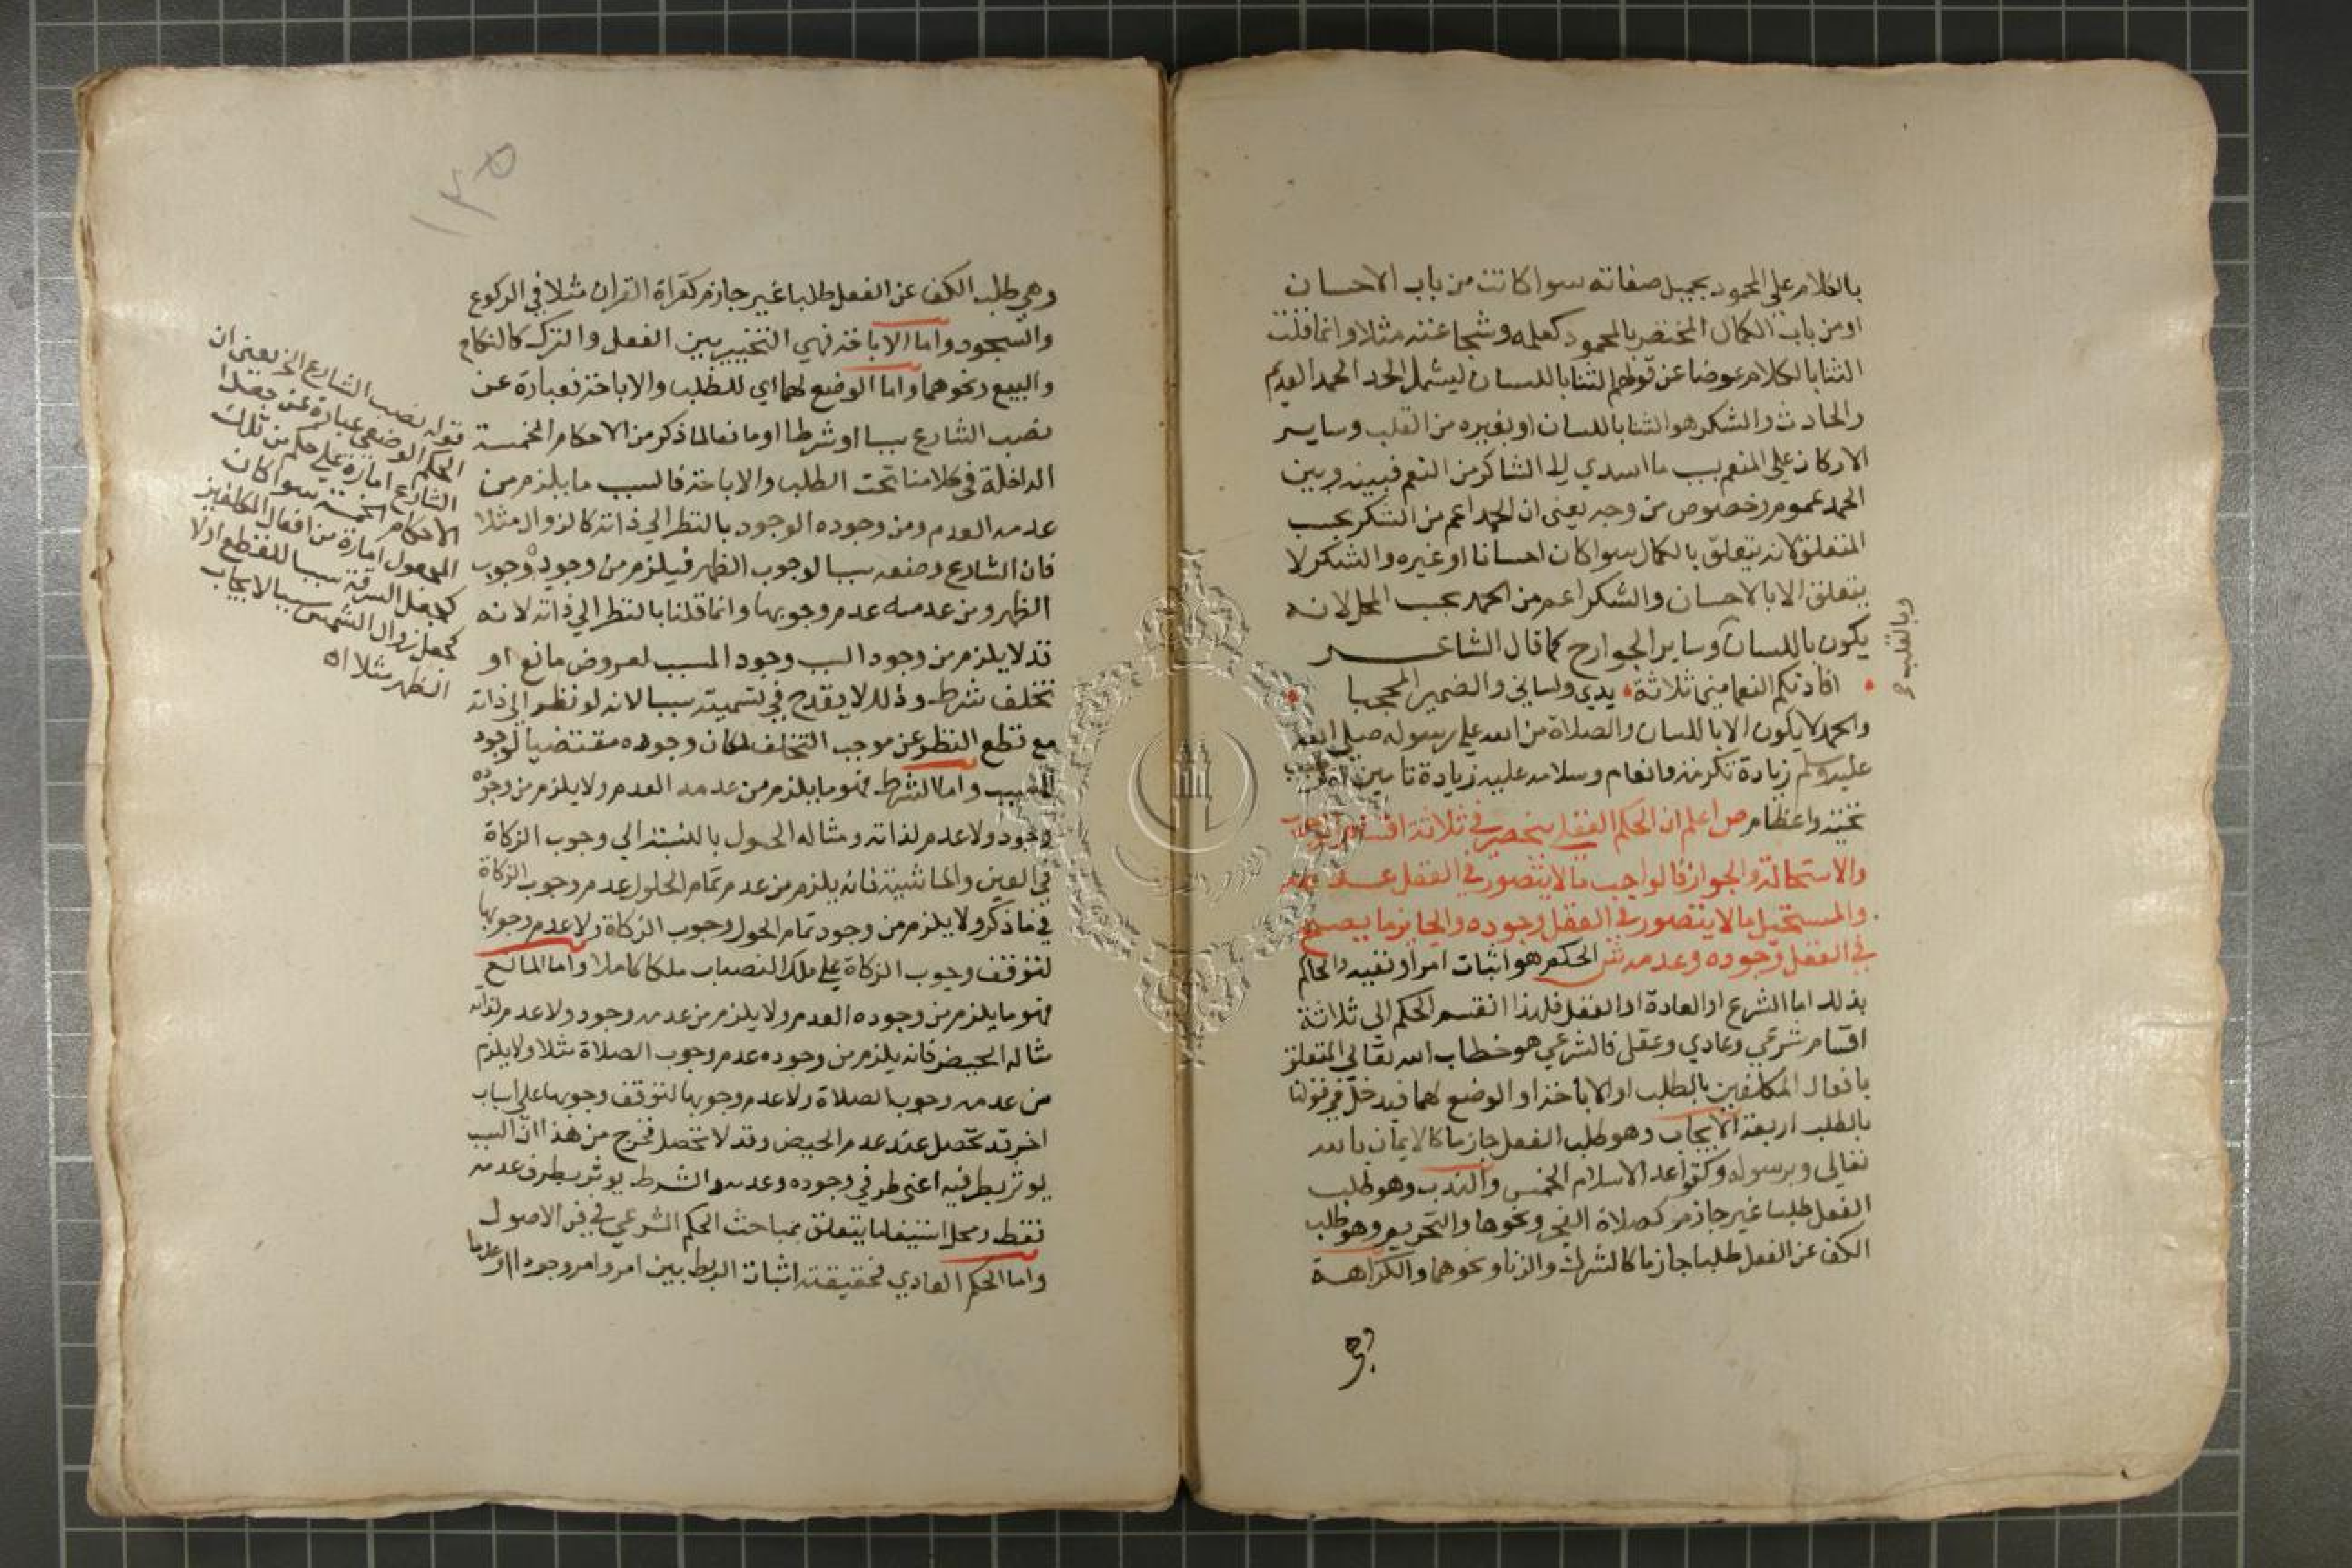 بالكلام على المحمود بجميل صفاته سوا كانت من باب الاحسان
او من باب الكمال المختص بالمحمود كعلمه وشجاعته مثلا وانما قلت
الثنا بالكلام عوضا عن قولهم الثنا باللسان ليشمل الحد الحمد القديم
والحادث والشكر هو الثنا باللسان او بغيره من القلب وساير
الاركان على المنعم بسبب ما اسدي الى الشاكر من النعم فبينه وبين
الحمد عموم وخصوص من وجه يعني ان الحمد اعم من الشكر بحسب
المتعلق لانه يتعلق بالكمال سوا كان احسانا او غيره والشكر لا
يتعلق الا بالاحسان والشكر اعم من الحمد بحسب المحل لانه
يكون باللسان وساير الجوارح كما قال الشاعر
وبالقلب صح
افادتكم النعما مني ثلاثة يدي ولساني والضمير المحجبا
والحمد لا يكون الا باللسان والصلاة من الله على رسوله صلى الله
عليه وسلم زيادة تكرمة وانعام وسلامه عليه زيادة تامين
تحية واعظام ص اعلم ان الحكم العقلي ينحصر في ثلاثة اقسام
والاستحالة والجواز فالواجب ما لا يتصور في العقل عدمه
والمستحيل ما لا يتصور في العقل وجوده والجايز ما يصح
في العقل وجوده وعدمه ش الحكم هو اثبات امر او نفيه والحاكم
بذلك اما الشرع او العادة او العقل فلهذا انقسم الحكم الى ثلاثة
اقسام شرعي وعادي وعقلي فالشرعي هو خطاب الله تعالى المتعلق
بافعال المكلفين بالطلب او الاباحة او الوضع لهما فيدخل في قولنا
بالطلب اربعة الايجاب وهو طلب الفعل جازما كالايمان بالله
تعالى وبرسوله وكقواعد الاسلام الخمس والندب وهو طلب
الفعل طلبا غير جازم كصلاة الفجر ونحوها والتحريم وهو طلب
الكف عن الفعل طلبا جازما كالشرك والزنا ونحوهما والكراهة
وهي
١٣٥
وهي طلب الكف عن الفعل طلبا غير جازم كقراة القران مثلا في الركوع
والسجود واما الاباحة فهي التخيير بين الفعل والترك كالنكاح
والبيع ونحوهما واما الوضع لهما اي للطلب والاباحة فعبارة عن
نصب الشارع سببا او شرطا او مانعا لما ذكر من الاحكام الخمسة
الداخلة في كلامنا تحت الطلب والاباحة فالسبب ما يلزم من
عدمه العدم ومن وجوده الوجود بالنظر الي ذاته كالزوال مثلا
فان الشارع وضعه سببا لوجوب الظهر فيلزم من وجوده وجوب
الظهر ومن عدمه عدم وجوبها وانما قلنا بالنظر الي ذاته لانه
قد لا يلزم من وجود السبب وجود المسبب لعروض مانع او
تخلف شرط وذلك لا يقدح في تسميته سببا لانه لو نظر الي ذاته
مع قطع النظر عن موجب التخلف لكان وجوده مقتضيا لوجود
المسبب واما الشرط فهو ما يلزم من عدمه العدم ولا يلزم من وجوده
وجود ولا عدم لذاته ومثاله الحول بالنسبة الي وجوب الزكاة
في العين والماشية فانه يلزم من عدم تمام الحلول عدم وجوب الزكاة
في ما ذكر ولا يلزم من وجود تمام الحول وجوب الزكاة ولا عدم وجوبها
لتوقف وجوب الزكاة على ملك النصاب ملكا كاملا واما المانع
فهو ما يلزم من وجوده العدم ولا يلزم من عدمه وجود ولا عدم لذاته
مثاله الحيض فانه يلزم من وجوده عدم وجوب الصلاة مثلا ولا يلزم
من عدمه وجوب الصلاة ولا عدم وجوبها لتوقف وجوبها على اسباب
اخر قد تحصل عند عدم الحيض وقد لا تحصل فخرج من هذا ان السبب
يوثر بطرفيه اعني طرفي وجوده وعدمه والشرط يوثر بطرف عدمه
فقط ومحل استيفا ما يتعلق بمباحث الحكم الشرعي في فن الاصول
واما الحكم العادي فحقيقته اثبات الربط بين امر وامر وجودا او عدما
قوله نصب الشارع الخ يعني ان
الحكم الوضعي عبارة عن جعل
الشارع امارة على حكم من تلك
الاحكام الخمسة سوا كان
المجعول امارة من افعال المكلفين
كجعل السرقة سببا للقطع او لا
كجعل زوال الشمس سببا لايجاب
الظهر مثلا اه